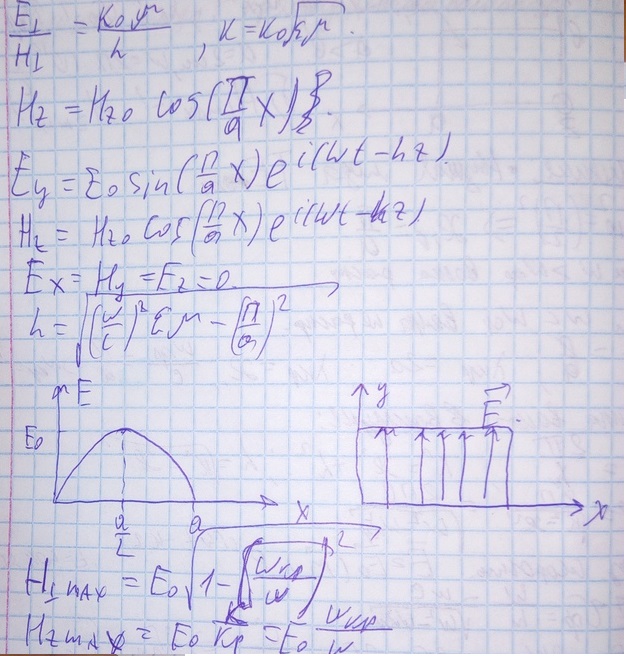 E⊥/H⊥ = k₀μ/h , k = k₀√εμ.
Hz = Hz₀ cos(π/a x)
Ey = E₀ sin(π/a x) e^i(ωt - hz)
Hz = Hz₀ cos(π/a x) e^i(ωt - hz)
Ex = Hy = Ez = 0.
h = √((ω/c)² εμ - (π/a)²)
E
E₀
a/2
a
x
y
E⃗
x
H⊥max = E₀ √(1 - (ωкр/ω)²)
Hz max = E₀ = E₀ ωкр/ω